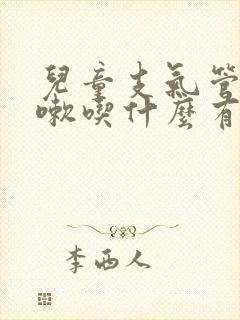 兒童支氣管
嗽喫什麼有
李西人